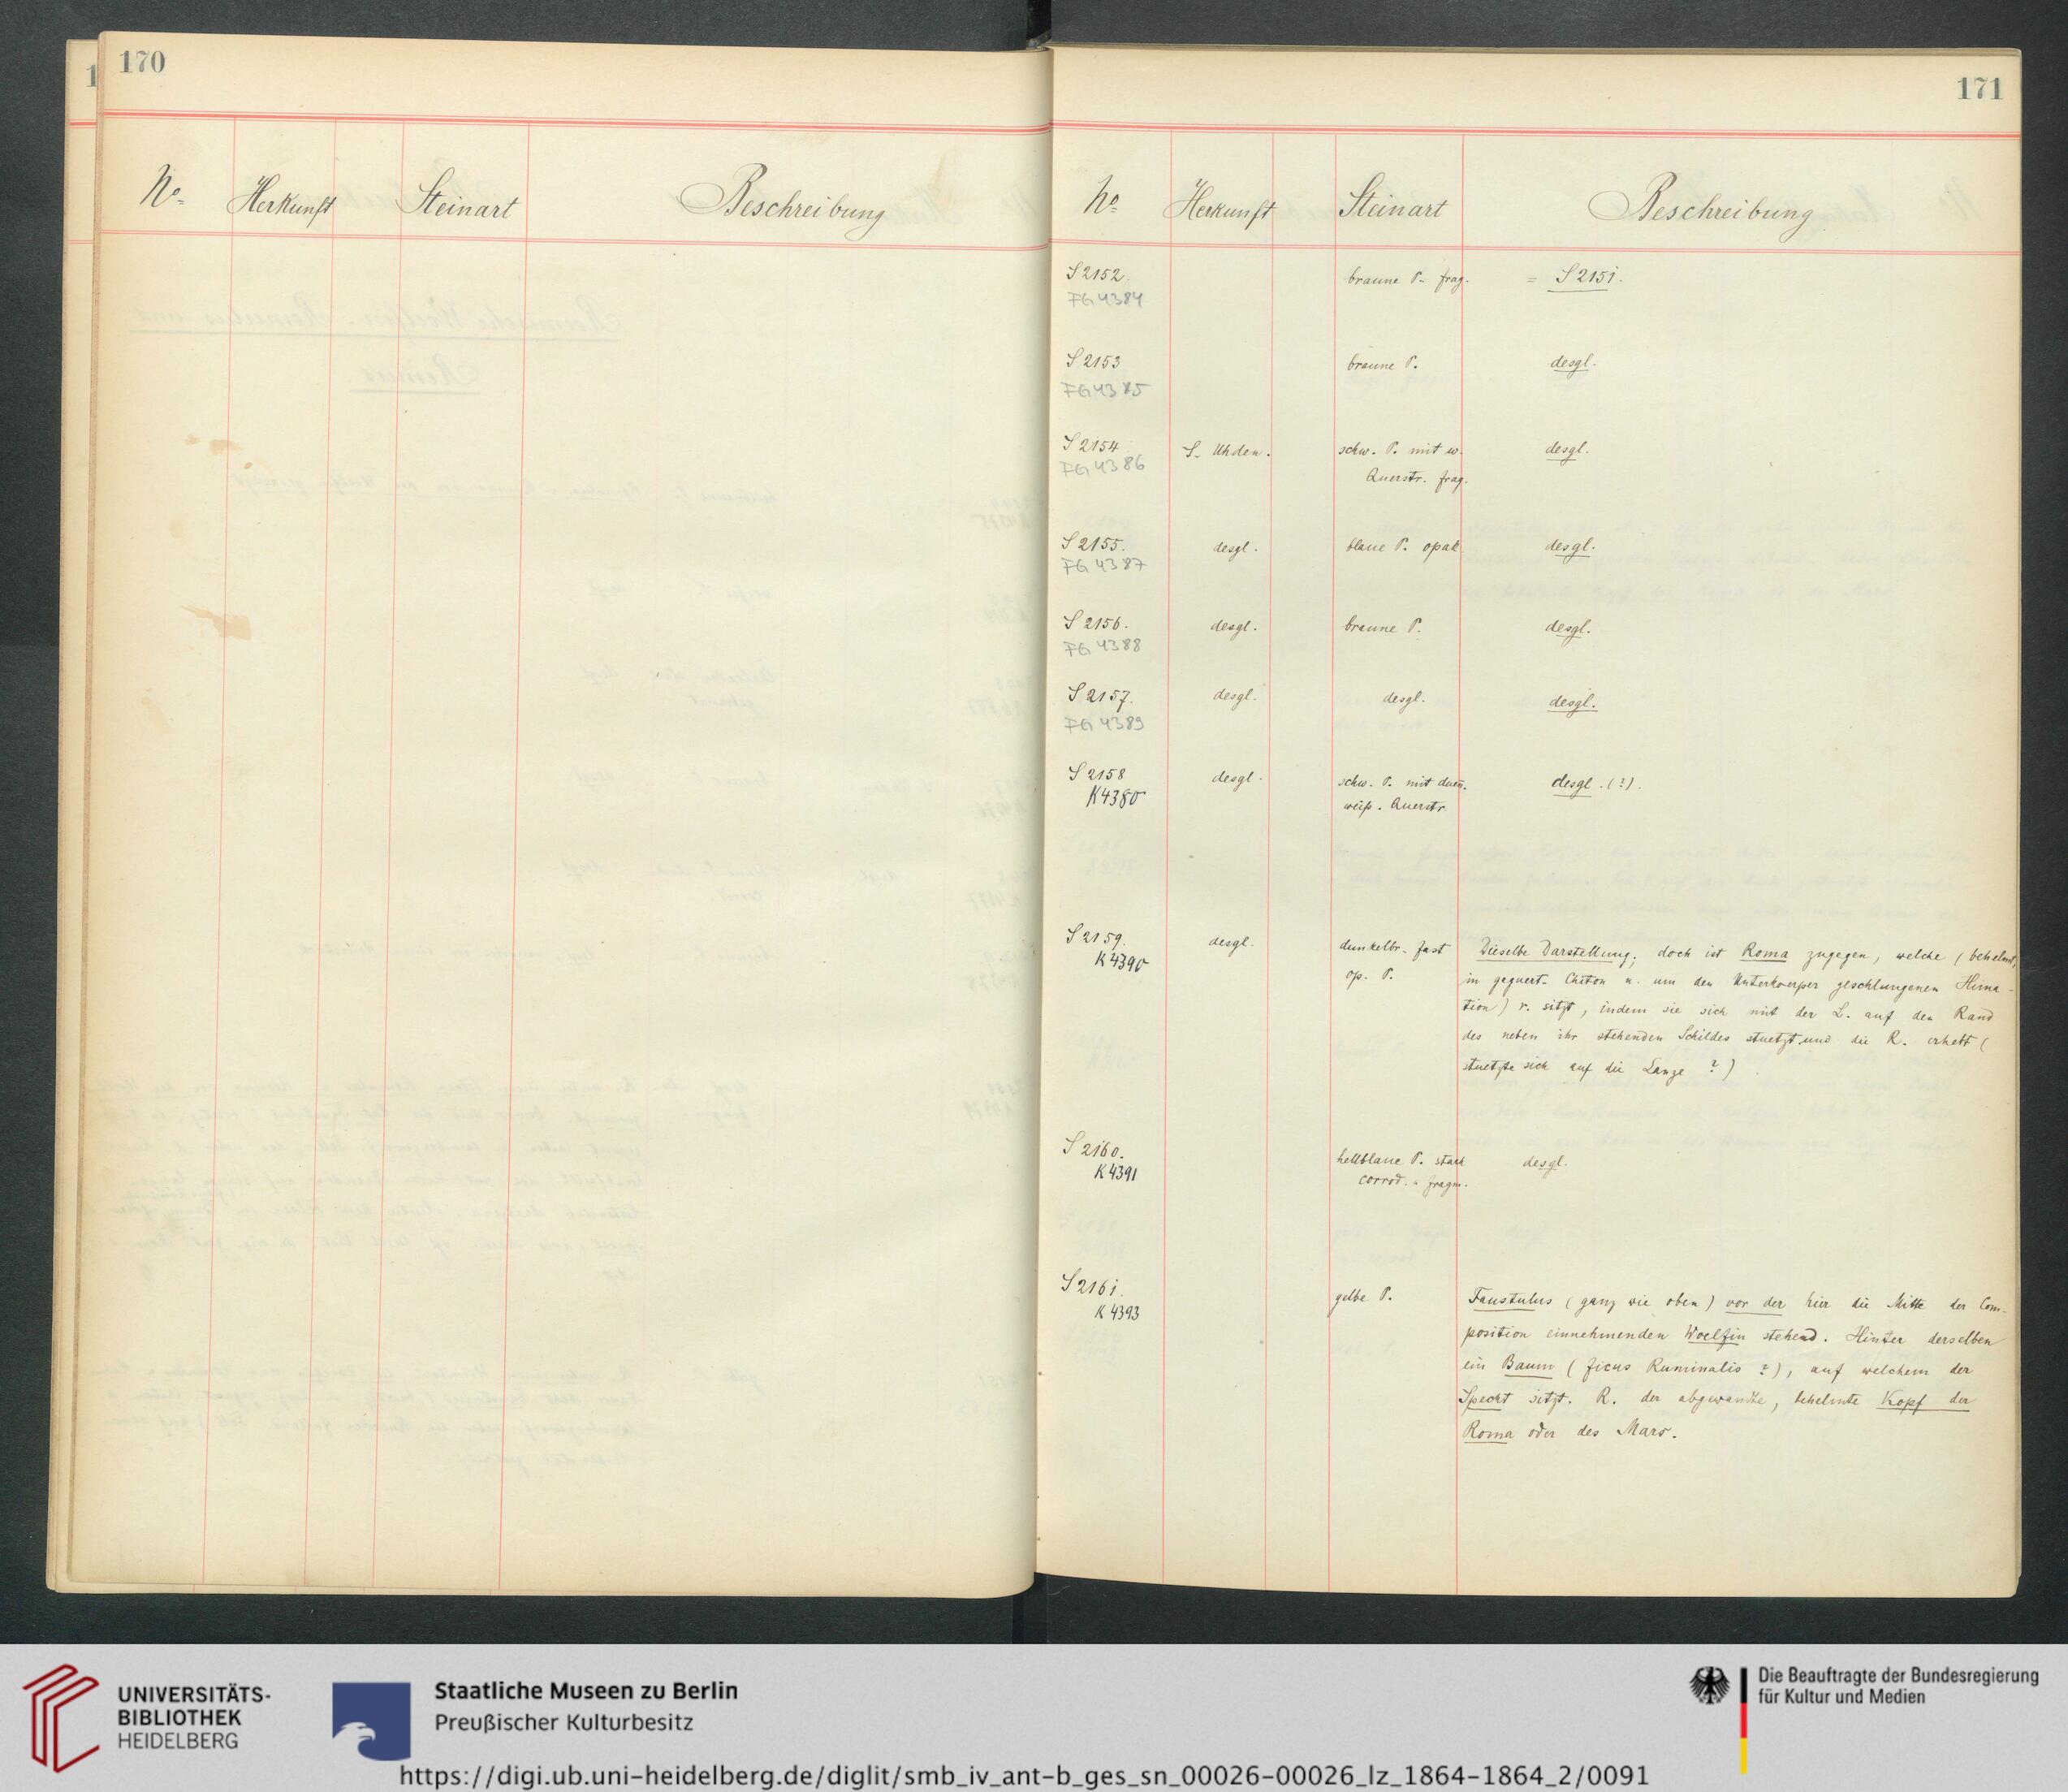 170
No. Herkunft Steinart Beschreibung
171
No. Herkunft Steinart Beschreibung
S 2152. braune P. frag. = S 2151.
FG 4384
S 2153 braune P. desgl.
FG 4385
S 2154 S. Uhden. schw. P. mit w. desgl.
FG 4386 Querstr. frag.
S 2155. desgl. blaue P. opak desgl.
FG 4387
S 2156. desgl. braune P. desgl.
FG 4388
S 2157. desgl. desgl. desgl.
FG 4389
S 2158 desgl. schw. P. mit duen. desgl. (?).
K 4380 weiß. Querstr.
S 2159. desgl. dunkelbr. fast Dieselbe Darstellung; doch ist Roma zugegen, welche (behelmt,
K 4390 op. P. in geguert. Chiton u. um den Unterkoerper geschlungenen Hima-
tion) r. sitzt, indem sie sich mit der L. auf den Rand
des neben ihr stehenden Schildes stuetzt und die R. erhebt (
stuetzte sich auf die Lanze ?)
S 2160. hellblaue P. stark desgl.
K 4391 corrod. u. fragm.
S 2161. gelbe P. Faustulus (ganz wie oben) vor der hier die Mitte der Com-
K 4393 position einnehmenden Woelfin stehend. Hinter derselben
ein Baum (ficus Ruminalis ?), auf welchem der
Specht sitzt. R. der abgewandte, behelmte Kopf der
Roma oder des Mars.
UNIVERSITÄTS-
BIBLIOTHEK
HEIDELBERG
Staatliche Museen zu Berlin
Preußischer Kulturbesitz
Die Beauftragte der Bundesregierung
für Kultur und Medien
https://digi.ub.uni-heidelberg.de/diglit/smb_iv_ant-b_ges_sn_00026-00026_lz_1864-1864_2/0091